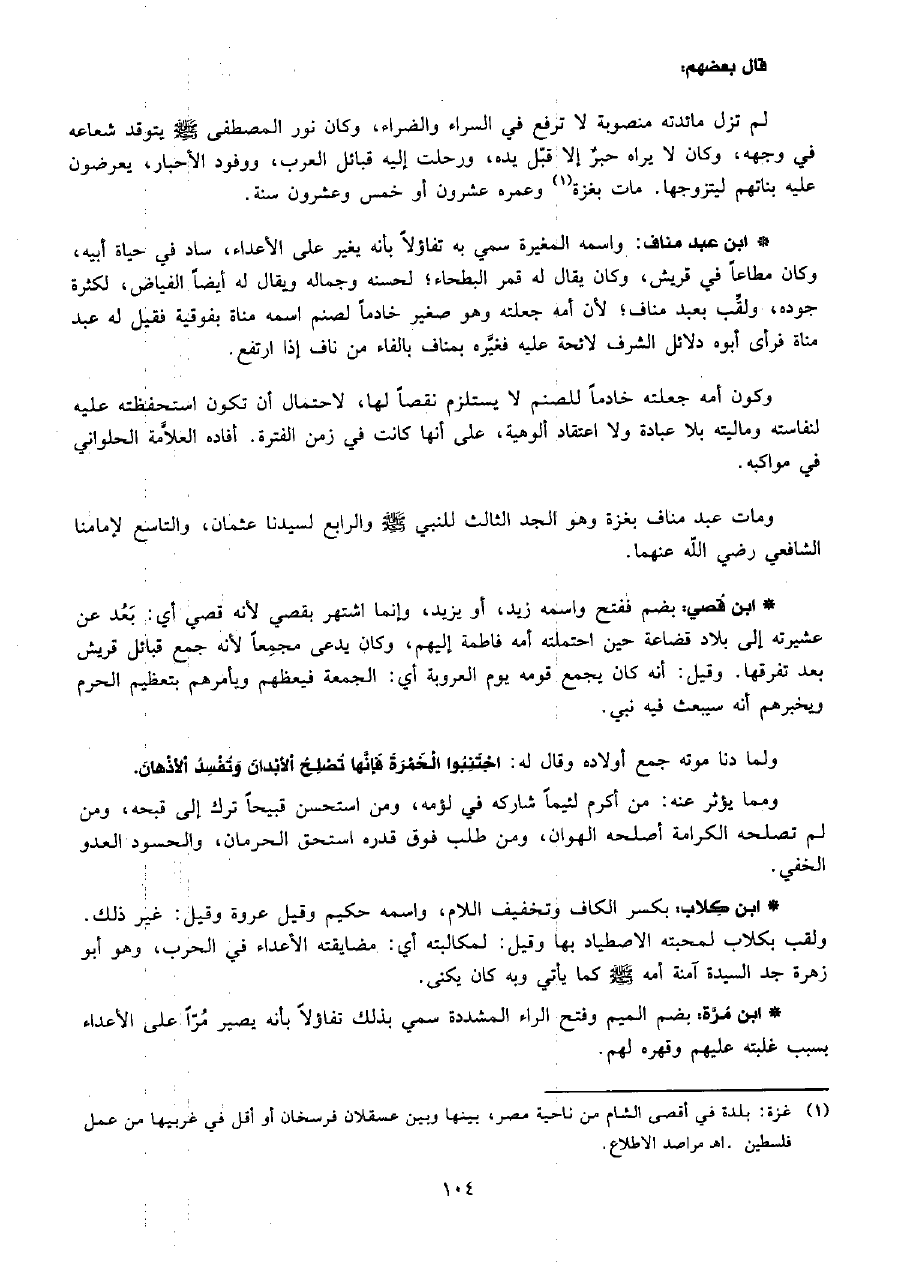 قال بعضهم:
لم تزل مائدته منصوبة لا ترفع في السراء والضراء، وكان نور المصطفى ﷺ يتوقد شعاعه
في وجهه، وكان لا يراه حبرٌ إلا قبّل يده، ورحلت إليه قبائل العرب، ووفود الأحبار، يعرضون
عليه بناتهم ليتزوجها. مات بغزة(١) وعمره عشرون أو خمس وعشرون سنة.
* ابن عبد مناف: واسمه المغيرة سمي به تفاؤلاً بأنه يغير على الأعداء، ساد في حياة أبيه،
وكان مطاعاً في قريش، وكان يقال له قمر البطحاء؛ لحسنه وجماله ويقال له أيضاً الفياض، لكثرة
جوده، ولقِّب بعبد مناف؛ لأن أمه جعلته وهو صغير خادماً لصنم اسمه مناة بفوقية فقيل له عبد
مناة فرأى أبوه دلائل الشرف لائحة عليه فغيَّره بمناف بالفاء من ناف إذا ارتفع.
وكون أمه جعلته خادماً للصنم لا يستلزم نقصاً لها، لاحتمال أن تكون استحفظته عليه
لنفاسته وماليته بلا عبادة ولا اعتقاد ألوهية، على أنها كانت في زمن الفترة. أفاده العلاَّمة الحلواني
في مواكبه.
ومات عبد مناف بغزة وهو الجد الثالث للنبي ﷺ والرابع لسيدنا عثمان، والتاسع لإمامنا
الشافعي رضي اللّه عنهما.
* ابن قُصي: بضم ففتح واسمه زيد، أو يزيد، وإنما اشتهر بقصي لأنه قصي أي: بَعُد عن
عشيرته إلى بلاد قضاعة حين احتملته أمه فاطمة إليهم، وكان يدعى مجمِعاً لأنه جمع قبائل قريش
بعد تفرقها. وقيل: أنه كان يجمع قومه يوم العروبة أي: الجمعة فيعظهم ويأمرهم بتعظيم الحرم
ويخبرهم أنه سيبعث فيه نبي.
ولما دنا موته جمع أولاده وقال له: اجْتَنِبُوا الْخَمْرَةَ فَإِنَّها تُصْلِحُ الأبْدانَ وَتُفْسِدُ الأذْهانَ.
ومما يؤثر عنه: من أكرم لئيماً شاركه في لؤمه، ومن استحسن قبيحاً ترك إلى قبحه، ومن
لم تصلحه الكرامة أصلحه الهوان، ومن طلب فوق قدره استحق الحرمان، والحسود العدو
الخفي.
* ابن كلاب: بكسر الكاف وتخفيف اللام، واسمه حكيم وقيل عروة وقيل: غير ذلك.
ولقب بكلاب لمحبته الاصطياد بها وقيل: لمكالبته أي: مضايقته الأعداء في الحرب، وهو أبو
زهرة جد السيدة آمنة أمه ﷺ كما يأتي وبه كان يكنى.
* ابن مُرَّة: بضم الميم وفتح الراء المشددة سمي بذلك تفاؤلاً بأنه يصير مُرّاً على الأعداء
بسبب غلبته عليهم وقهره لهم.
(١) غزة: بلدة في أقصى الشام من ناحية مصر، بينها وبين عسقلان فرسخان أو أقل في غربيها من عمل
فلسطين .اهـ مراصد الاطلاع.
١٠٤